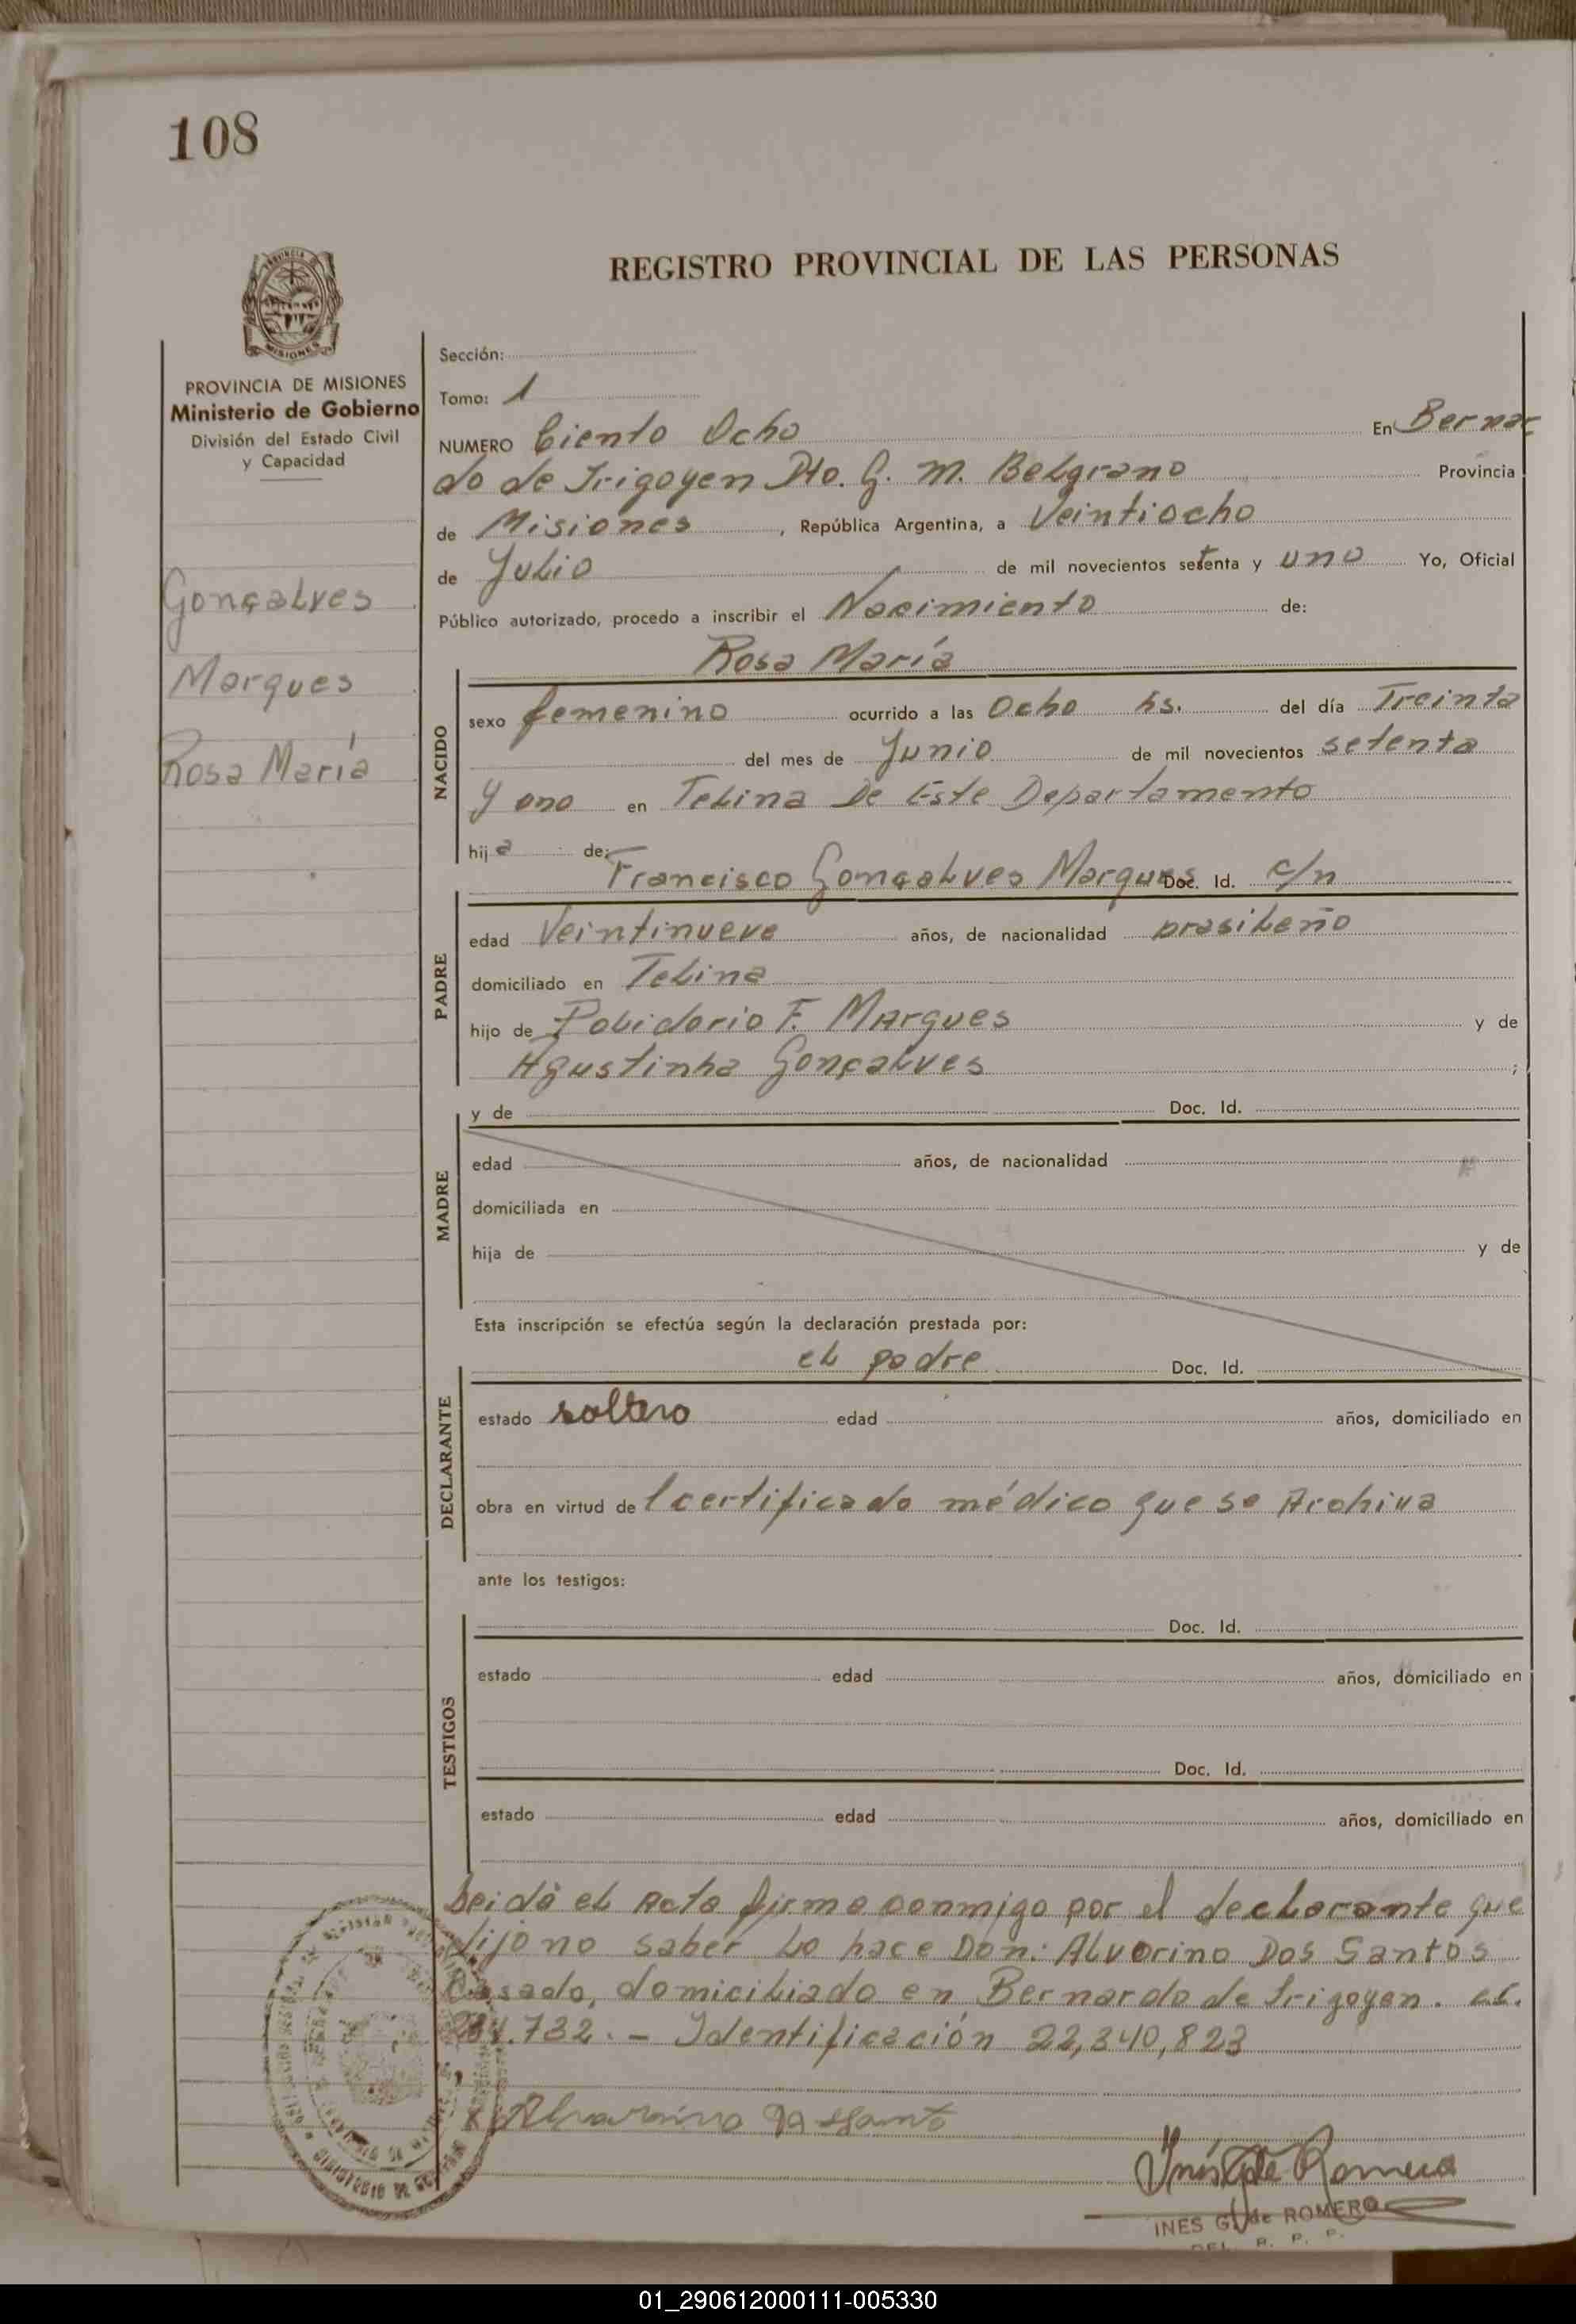 108
REGISTRO PROVINCIAL DE LAS PERSONAS
MISIONES
PROVINCIA DE MISIONES
Ministerio de Gobierno
División del Estado Civil
y Capacidad
Gonçalves
Marques
Rosa María
Sección:
Tomo: 1
NUMERO Ciento Ocho En Bernar
do de Irigoyen Dto. G. M. Belgrano Provincia
de Misiones, República Argentina, a Veintiocho
de Julio de mil novecientos setenta y uno Yo, Oficial
Público autorizado, procedo a inscribir el Nacimiento de:
Rosa María
NACIDO
sexo femenino ocurrido a las Ocho hs. del día Treinta
del mes de Junio de mil novecientos setenta
y uno en Telina De Este Departamento
hija de:
Francisco Gonçalves Marques Doc. Id. c/n
PADRE
edad Veintinueve años, de nacionalidad brasileño
domiciliado en Telina
hijo de Polidorio F. Marques y de
Agustinha Gonçalves ;
y de Doc. Id.
MADRE
edad años, de nacionalidad
domiciliada en
hija de y de
Esta inscripción se efectúa según la declaración prestada por:
el padre Doc. Id.
DECLARANTE
estado soltero edad años, domiciliado en
obra en virtud de l certificado médico que se Archiva
ante los testigos:
Doc. Id.
TESTIGOS
estado edad años, domiciliado en
Doc. Id.
estado edad años, domiciliado en
Leida el Acta firma conmigo por el declarante que
dijo no saber lo hace Don: Alvorino Dos Santos
Casado, domiciliado en Bernardo de Irigoyen.
.732. - Identificación 22,340,823
Inés G. de Romero
INES G. de ROMERO
DEL. R. P. P.
01_290612000111-005330